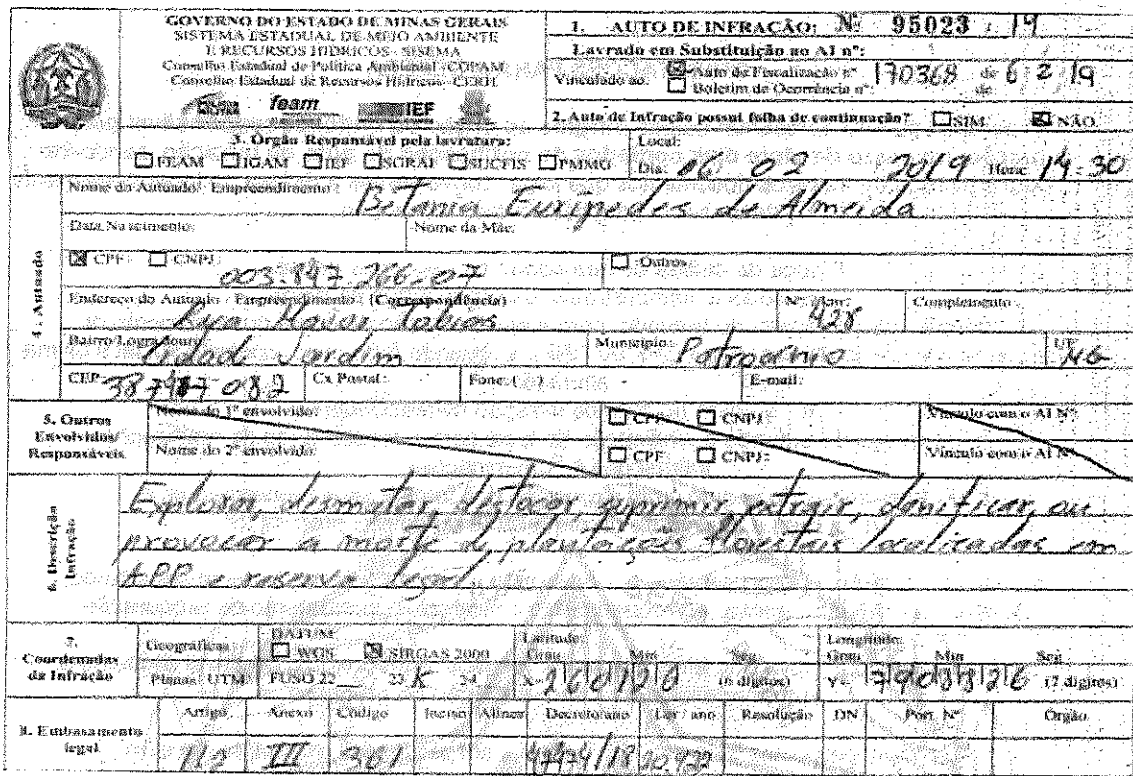 GOVERNO DO ESTADO DE MINAS GERAIS
SISTEMA ESTADUAL DE MEIO AMBIENTE
E RECURSOS HIDRICOS - SISEMA
Conselho Estadual de Política Ambiental - COPAM
Conselho Estadual de Recursos Hídricos - CERH
feam IEF
1. AUTO DE INFRAÇÃO: Nº 95023 / 19
Lavrado em Substituição ao AI nº:
Vinculado ao: Auto de Fiscalização nº 170368 de 6 2 19
Boletim de Ocorrência nº: de
2. Auto de Infração possui folha de continuação? SIM NÃO
3. Órgão Responsável pela lavratura:
FEAM IGAM IEF SGRAI SUCFIS PMMG
Local:
Dia: 06 02 2019 Hora: 14:30
4. Autuado
Nome do Autuado / Empreendimento:
Betania Eurípedes de Almeida
Data Nascimento: Nome da Mãe:
CPF: CNPJ: Outros
003.847 266-07
Endereço do Autuado / Empreendimento: (Correspondência) Nº / km: Complemento:
Rua Tobias 428
Bairro/Logradouro: Município: UF
Cidad Jardim Patrocínio MG
CEP: Cx Postal: Fone: ( ) - E-mail:
5. Outros Envolvidos/ Responsáveis
Nome do 1º envolvido: CPF: CNPJ: Vínculo com o AI Nº:
Nome do 2º envolvido: CPF: CNPJ: Vínculo com o AI Nº
6. Descrição Infração
Explorar, desmatar, destocar, suprimir, extrair, danificar, ou
provocar a morte de plantações florestais localizadas em
APP e reserva legal
7. Coordenadas da Infração
Geográficas DATUM: WGS SIRGAS 2000 Latitude: Grau Min Seg Longitude: Grau Min Seg
Planas: UTM FUSO 22 23 K 24 X= 260120 (6 dígitos) Y= 7903326 (7 dígitos)
8. Embasamento legal
Artigo Anexo Código Inciso Alínea Decreto/ano Lei / ano Resolução DN Port. Nº Órgão
112 III 361 47474/18 20.922